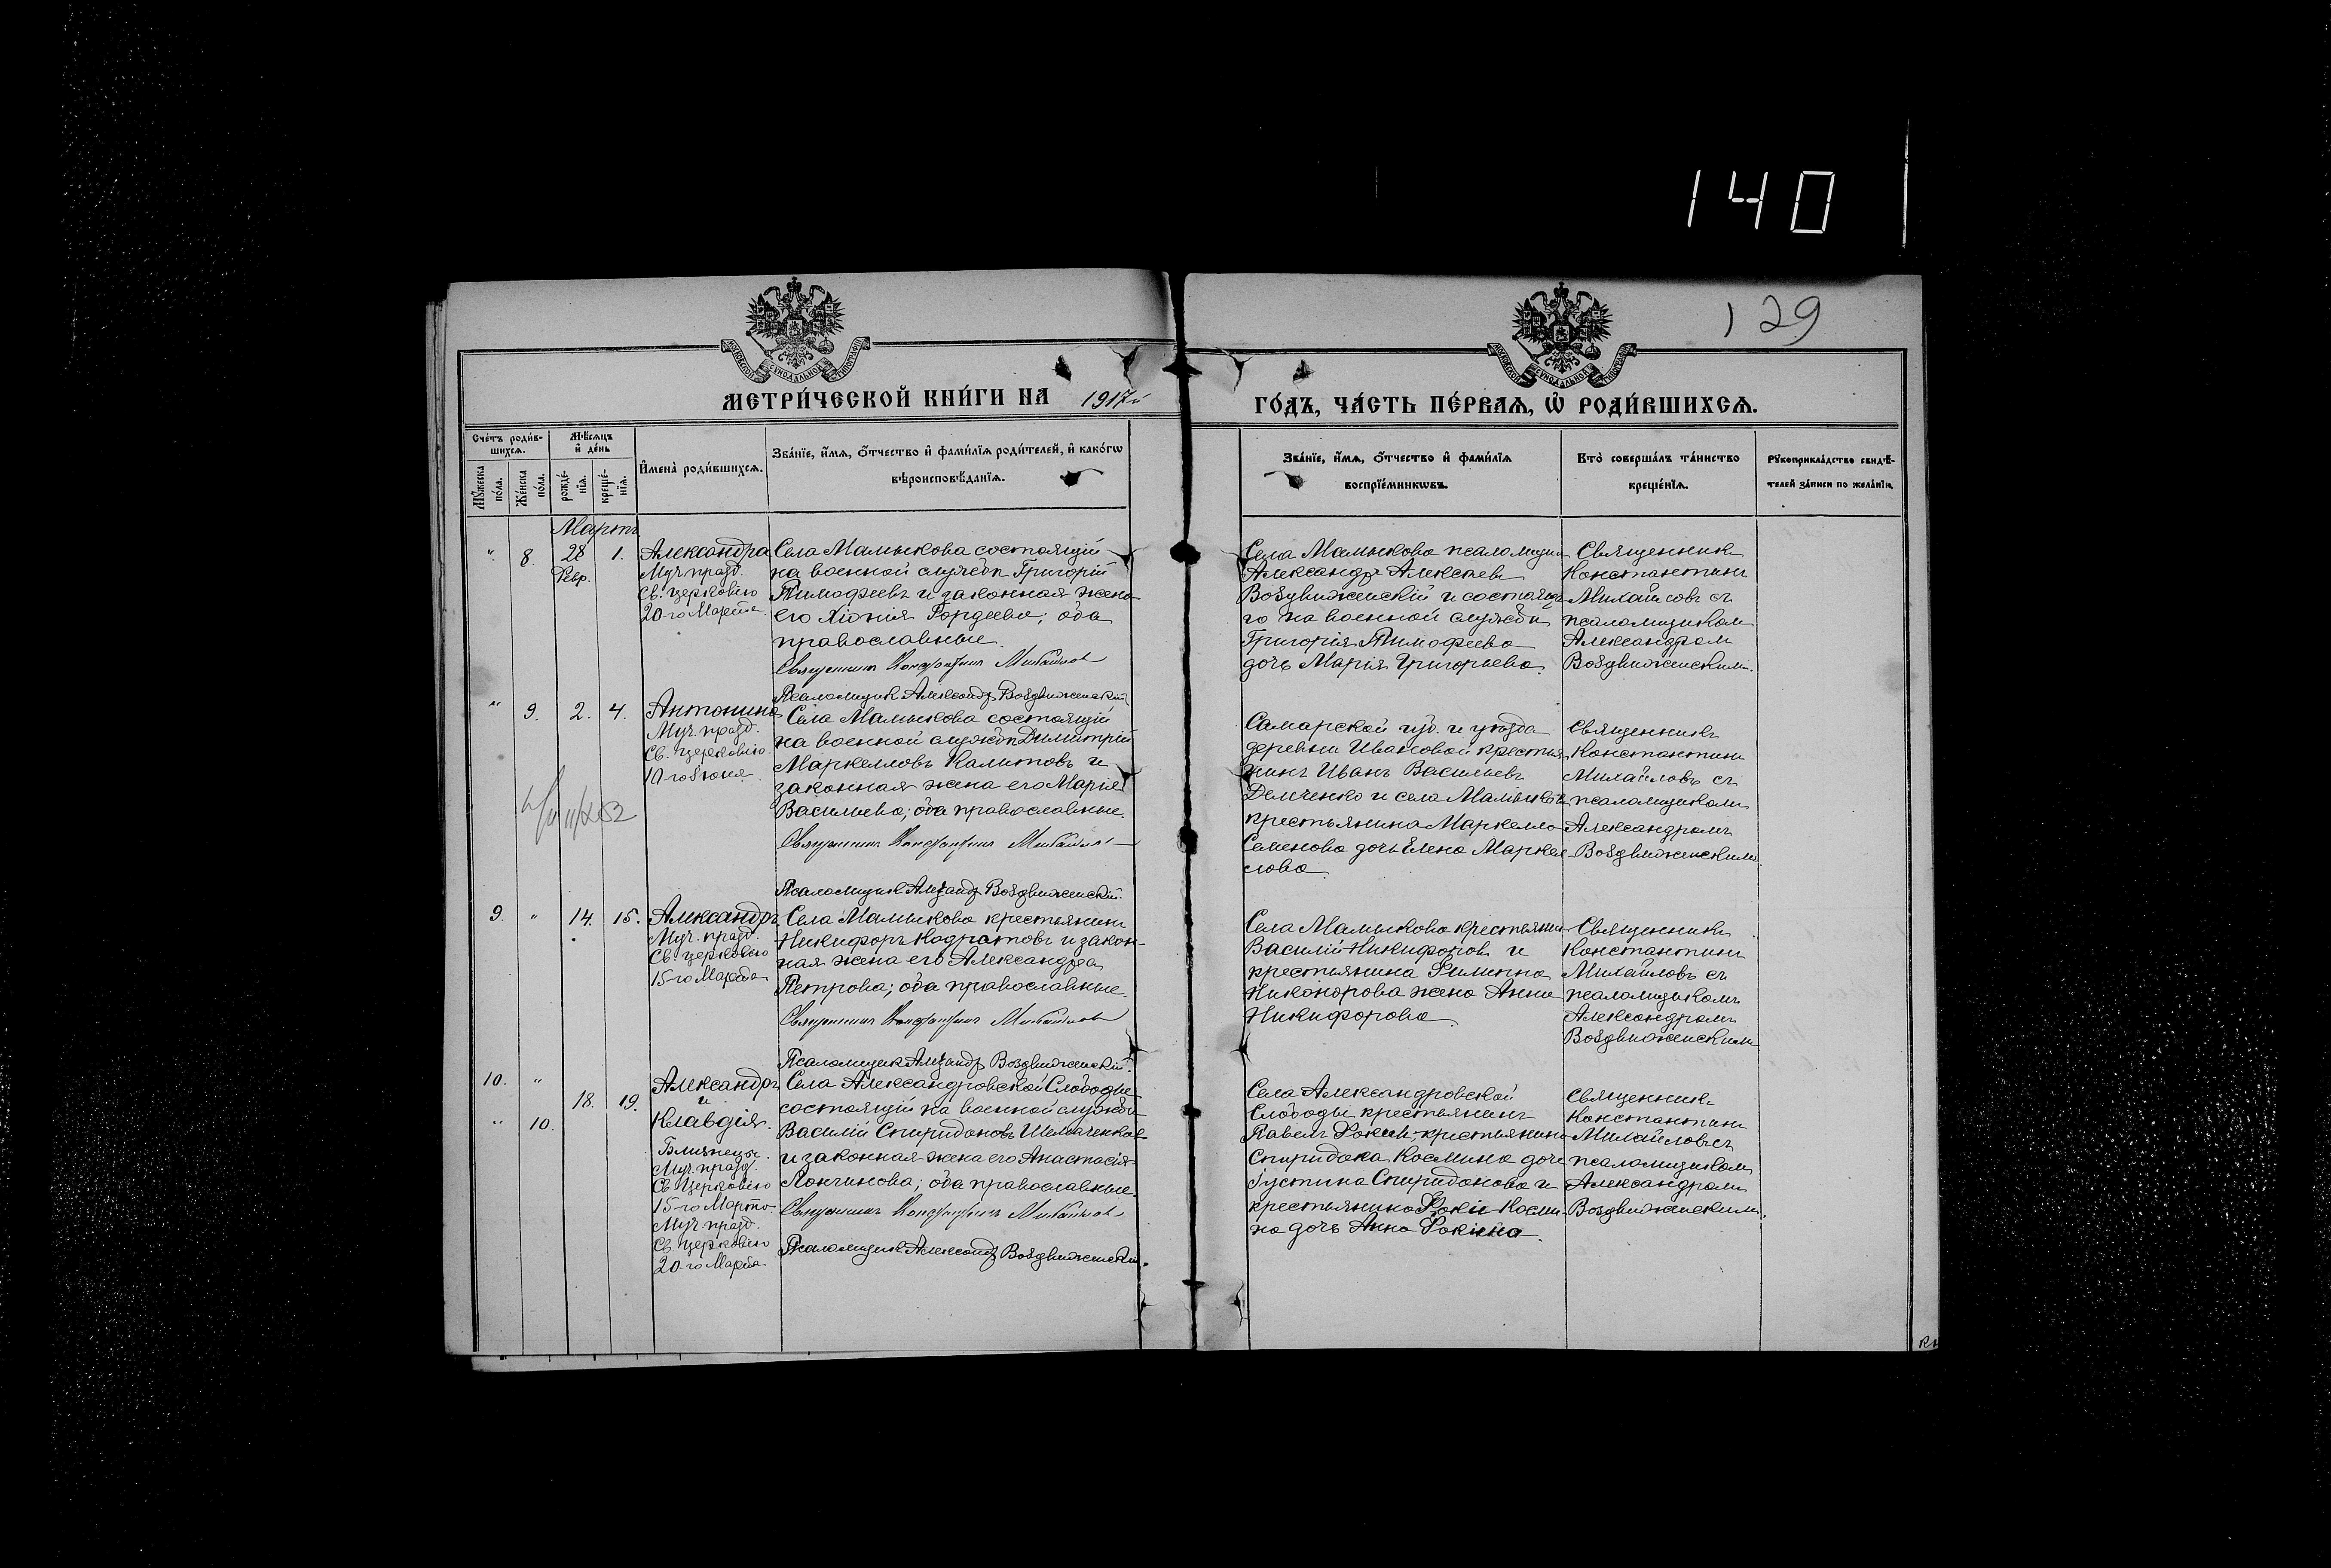 140
129
МОСКОВСКОЙ СѴНОДАЛЬНОЙ ТИПОГРАФІИ
МОСКОВСКОЙ СѴНОДАЛЬНОЙ ТИПОГРАФІИ
МЕТРИ́ЧЕСКОЙ КНИ́ГИ НА 1917й
ГО́ДЪ, ЧА́СТЬ ПЕ́РВАѦ, Ѡ҆ РОДИ́ВШИХСѦ.
Сче́тъ роди́в-
шихсѧ.
Мѣ́сѧцъ
и҆ де́нь
Мꙋ́жеска
по́ла.
Же́нска
по́ла.
рожде́-
нїѧ.
креще́-
нїѧ.
И҆мена̀ роди́вшихсѧ.
Зва́нїе, и҆́мѧ, ѻ҆́тчество и҆ фами́лїѧ роди́телей, и҆ како́гѡ
вѣроисповѣ́данїѧ.
Зва́нїе, и҆́мѧ, ѻ҆́тчество и҆ фами́лїѧ
воспрїе́мникѡвъ.
Кто̀ соверша́лъ та́инство
креще́нїѧ.
Рꙋкоприкла́дство свидѣ́-
телей за́писи по жела́нїю.
Мартъ
" 8. 28 1.
Февр.
Александра
Муч. празд.
Св. церковію
20-го Марта.
Села Мамыкова состоящій
на военной службѣ Григорій
Тимофеевъ и законная жена
его Хіонія Гордеева; оба
православные.
Священникъ Константинъ Михайловъ
Псаломщикъ Александръ Воздвиженскій
Села Мамыкова псаломщикъ
Александръ Алексѣевъ
Воздвиженскій и состояща-
го на военной службѣ
Григорія Тимофеева
дочь Марія Григорьева.
Священникъ
Константинъ
Михайловъ съ
псаломщикомъ
Александромъ
Воздвиженскимъ.
" 9. 2. 4.
Антонина
Муч. празд.
Св. церковію
10-го Іюня.
Села Мамыкова состоящій
на военной службѣ Димитрій
Маркелловъ Калитовъ и
законная жена его Марія
Васильева; оба православные.
Священникъ Константинъ Михайловъ
Псаломщикъ Александръ Воздвиженскій.
Самарской губ. и уѣзда
деревни Ивановой крестья-
нинъ Иванъ Васильевъ
Демченко и села Мамыкова
крестьянина Маркелла
Семенова дочь Елена Маркел-
лова.
Священникъ
Константинъ
Михайловъ съ
псаломщикомъ
Александромъ
Воздвиженскимъ.
9. " 14. 15.
Александръ
Муч. празд.
Св. церковію
15-го Марта
Села Мамыкова крестьянинъ
Никифоръ Кодратовъ и закон-
ная жена его Александра
Петрова; оба православные.
Священникъ Константинъ Михайловъ
Псаломщикъ Александръ Воздвиженскій.
Села Мамыкова крестьянинъ
Василій Никифоровъ и
крестьянина Филиппа
Никонорова жена Анна
Никифорова.
Священникъ
Константинъ
Михайловъ съ
псаломщикомъ
Александромъ
Воздвиженскимъ
10. "
18. 19.
" 10.
Александръ
и
Клавдія.
Близнецы.
Муч. празд.
Св. Церковію
15-го Марта.
Муч. празд.
Св. церковію
20-го Марта.
Села Александровской Слободы
состоящій на военной службѣ
Василій Спиридоновъ
и законная жена его Анастасія
Лонгинова; оба православные.
Священникъ Константинъ Михайловъ
Псаломщикъ Александръ Воздвиженскій.
Села Александровской
Слободы крестьянинъ
Павелъ Фокинъ; крестьянина
Спиридона Космина дочь
Іустина Спиридонова и
крестьянина Фоки Косми-
на дочь Анна Фокина.
Священникъ
Константинъ
Михайловъ съ
псаломщикомъ
Александромъ
Воздвиженскимъ.